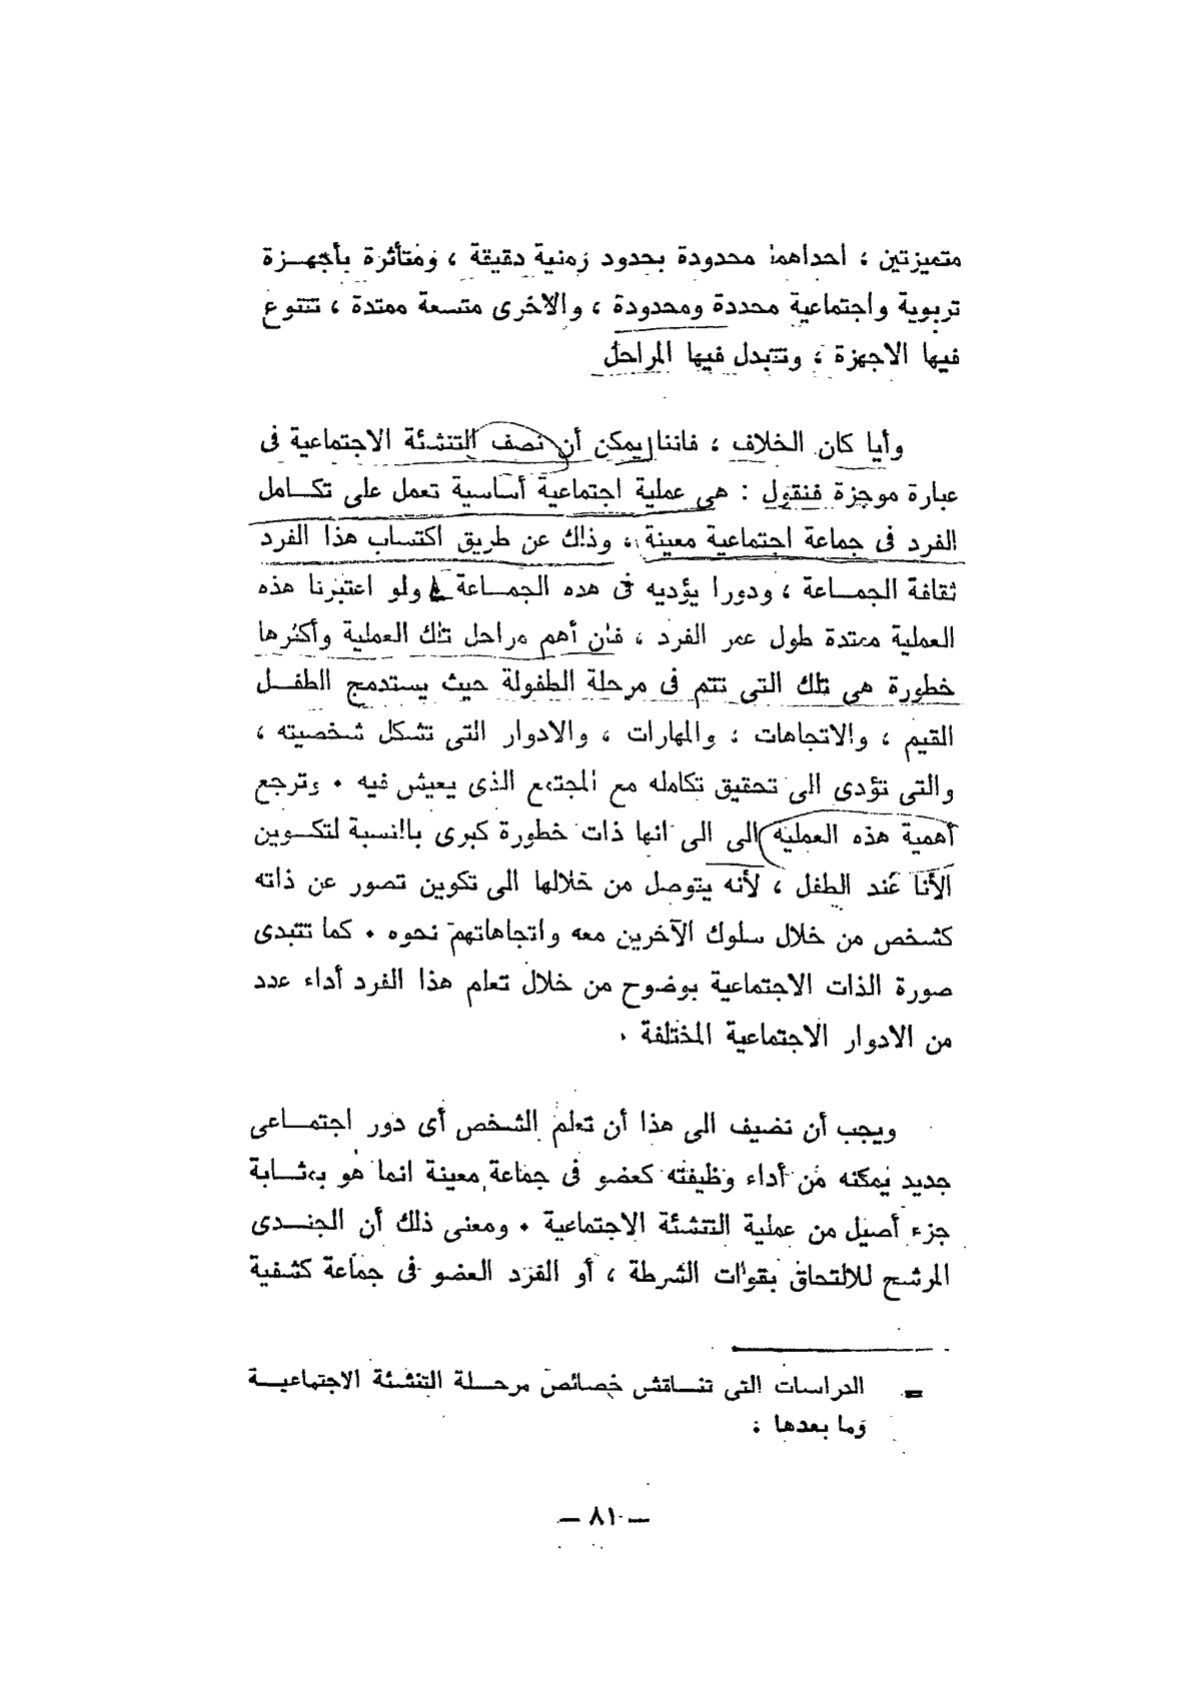 متميزتين ، احداهما محدودة بحدود زمنية دقيقة ، ومتأثرة بأجهـــزة
تربوية واجتماعية محددة ومحدودة ، والاخرى متسعة ممتدة ، تتنوع
فيها الاجهزة ، وتتبدل فيها المراحل
وأيا كان الخلاف ، فاننا يمكن أن نصف التنشئة الاجتماعية فى
عبارة موجزة فنقول : هى عملية اجتماعية أساسية تعمل على تكـــامل
الفرد فى جماعة اجتماعية معينة ، وذلك عن طريق اكتساب هذا الفرد
ثقافة الجمـــاعة ، ودورا يؤديه فى هده الجمــاعة ولو اعتبرنا هذه
العملية ممتدة طول عمر الفرد ، فان أهم مراحل تلك العملية وأكثرها
خطورة هى تلك التى تتم فى مرحلة الطفولة حيث يستدمج الطفــل
القيم ، والاتجاهات ، والمهارات ، والادوار التى تشكل شخصيته ،
والتى تؤدى الى تحقيق تكامله مع المجتمع الذى يعيش فيه . وترجع
أهمية هذه العمليه الى الى انها ذات خطورة كبرى بالنسبة لتكـــوين
الأنا عند الطفل ، لأنه يتوصل من خلالها الى تكوين تصور عن ذاته
كشخص من خلال سلوك الآخرين معه واتجاهاتهم نحوه . كما تتبدى
صورة الذات الاجتماعية بوضوح من خلال تعلم هذا الفرد أداء عدد
من الادوار الاجتماعية المختلفة .
ويجب أن نضيف الى هذا أن تعلم الشخص أى دور اجتمـــاعى
جديد يمكنه من أداء وظيفته كعضو فى جماعة معينة انما هو بمثـــابة
جزء أصيل من عملية التنشئة الاجتماعية . ومعنى ذلك أن الجنـــدى
المرشح للالتحاق بقوات الشرطة ، أو الفرد العضو فى جماعة كشفية
= الدراسات التى تنـــاقش خصائص مرحــلة التنشئة الاجتماعيـــة
وما بعدها :
— ٨١ —